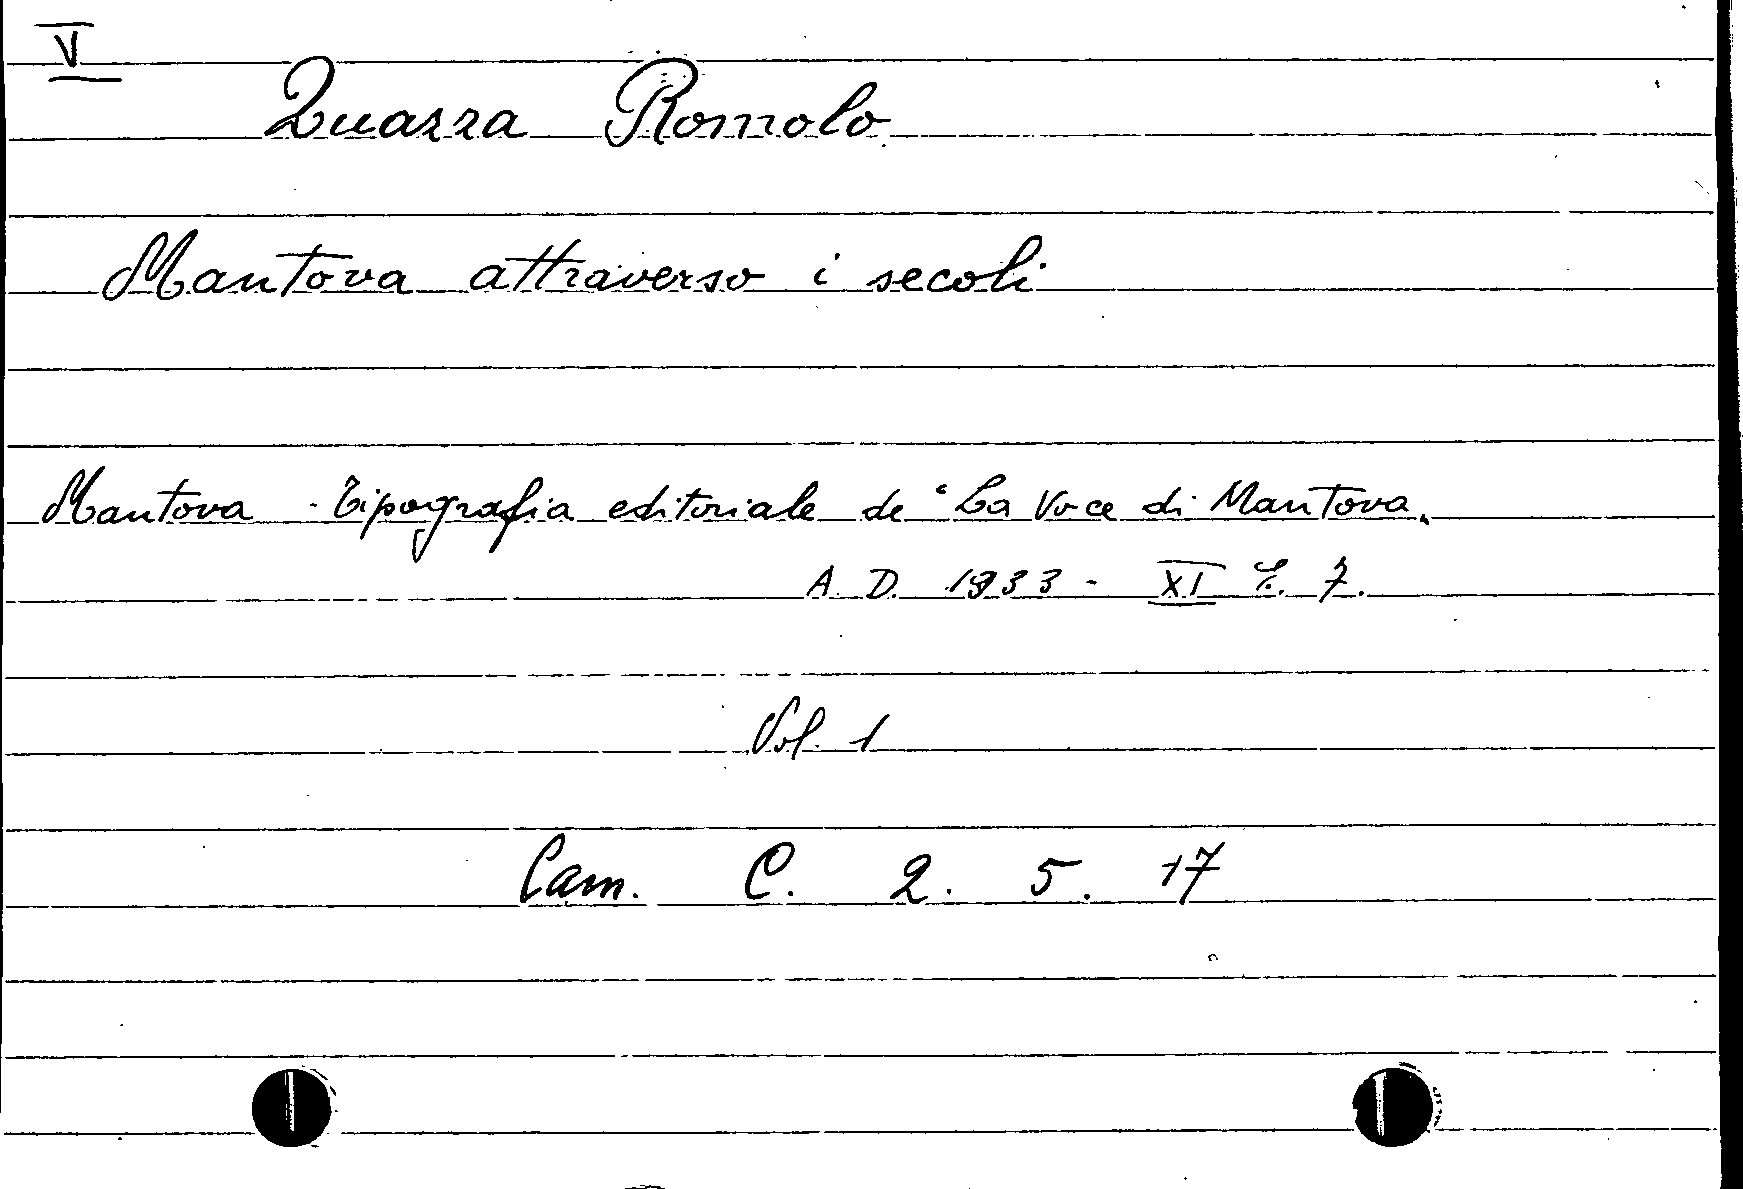 V
Quazza Romolo
Mantova attraverso i secoli
Mantova - Tipografia editoriale de "La Voce di Mantova„
A. D. 1933 - XI E. F.
Vol. 1
Cam. C. 2. 5. 17